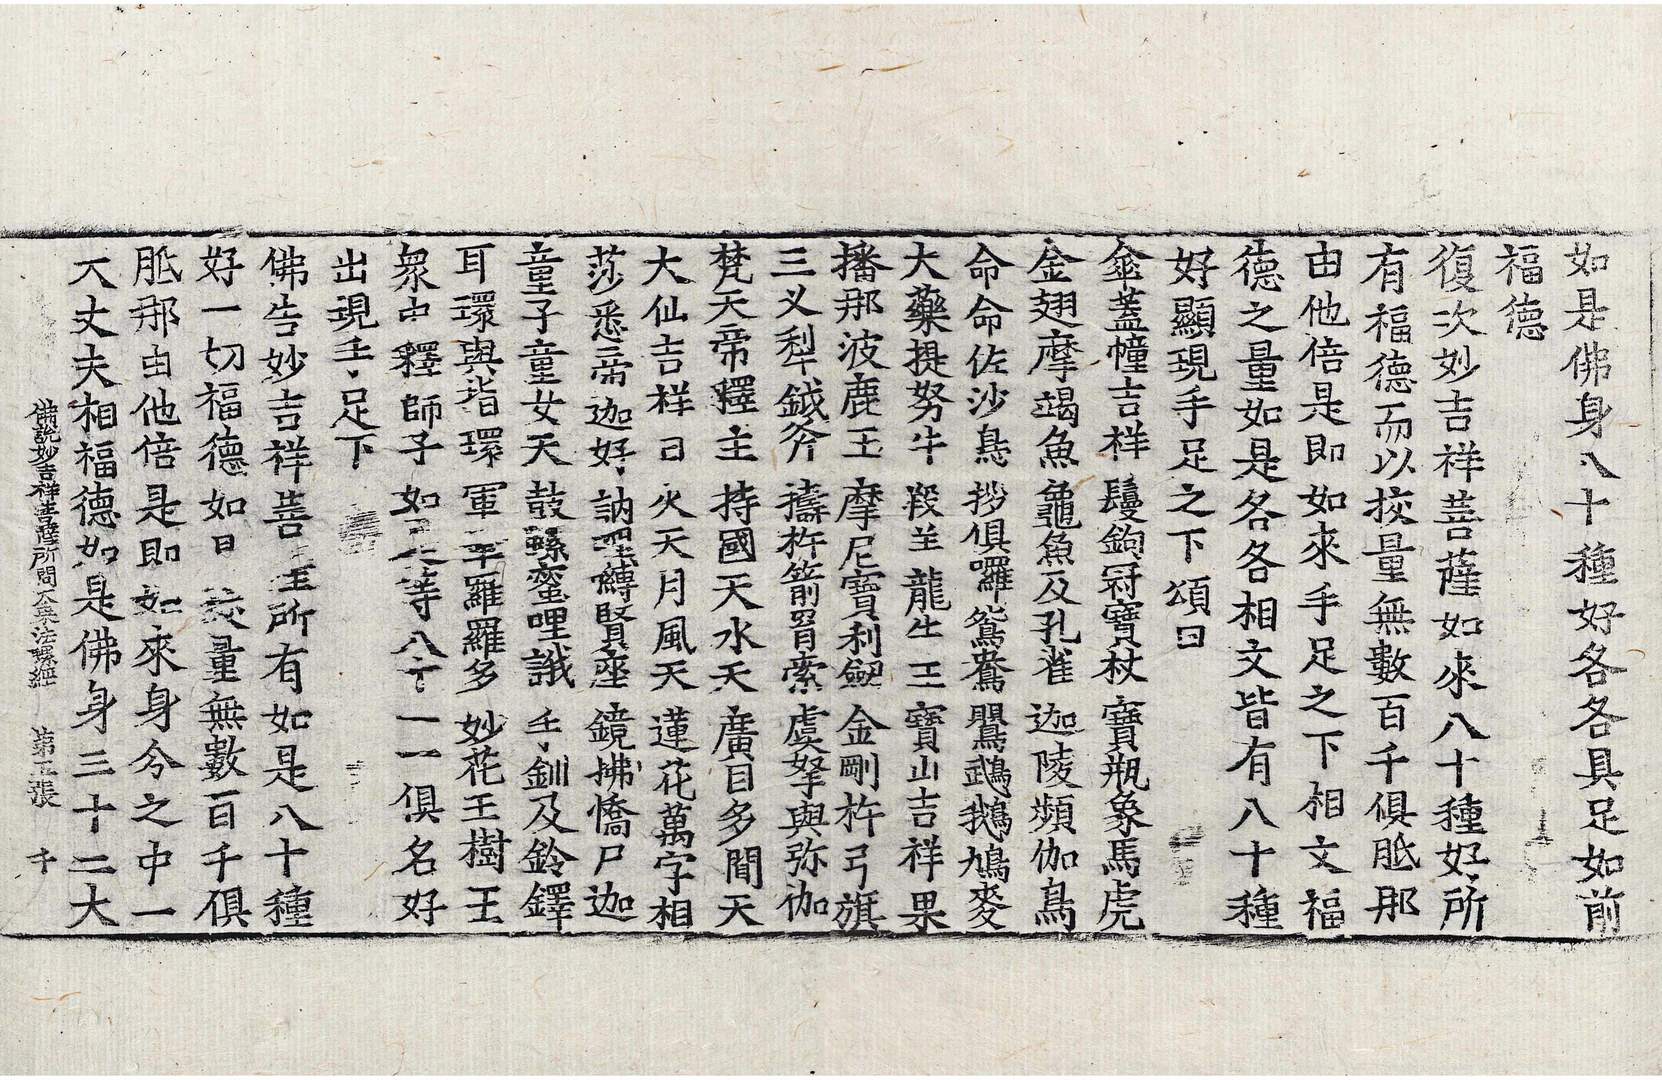 如是佛身八十種好各各具足如前
福德
復次妙吉祥菩薩如來八十種好所
有福德而以挍量無數百千俱胝那
由他倍是即如來手足之下相文福
德之量如是各各相文皆有八十種
好顯現手足之下 頌曰
傘蓋幢吉祥 鬘鉤冠寶杖 寶瓶象馬虎
金翅摩竭魚 龜魚及孔雀 迦陵頻伽鳥
命命佐沙鳥 拶俱囉鴛鴦 鸜鵡鵝鳩麥
大藥提努牛 羖羊龍牛王 寶山吉祥果
播那波鹿王 摩尼寶利劔 金剛杵弓旗
三义犁鉞斧 擣杵箭罥索 虞拏與弥伽
梵天帝釋主 持國天水天 廣目多聞天
大仙吉祥日 火天月風天 蓮花萬字相
莎悉帝迦好 訥縛賢座 鏡拂憍尸迦
童子童女天 鼓螺蛮哩誐 手釧及鈴鐸
耳環與指環 軍羅羅多 妙花王樹王
衆中釋師子 如等八十 一一俱名好
出現手足下
佛告妙吉祥菩所有如是八十種
好一切福德如日挍量無數百千俱
胝那由他倍是即如來身今之中一
大丈夫相福德如是佛身三十二大
佛說妙吉祥菩薩所問大乘法螺經 第五張 千